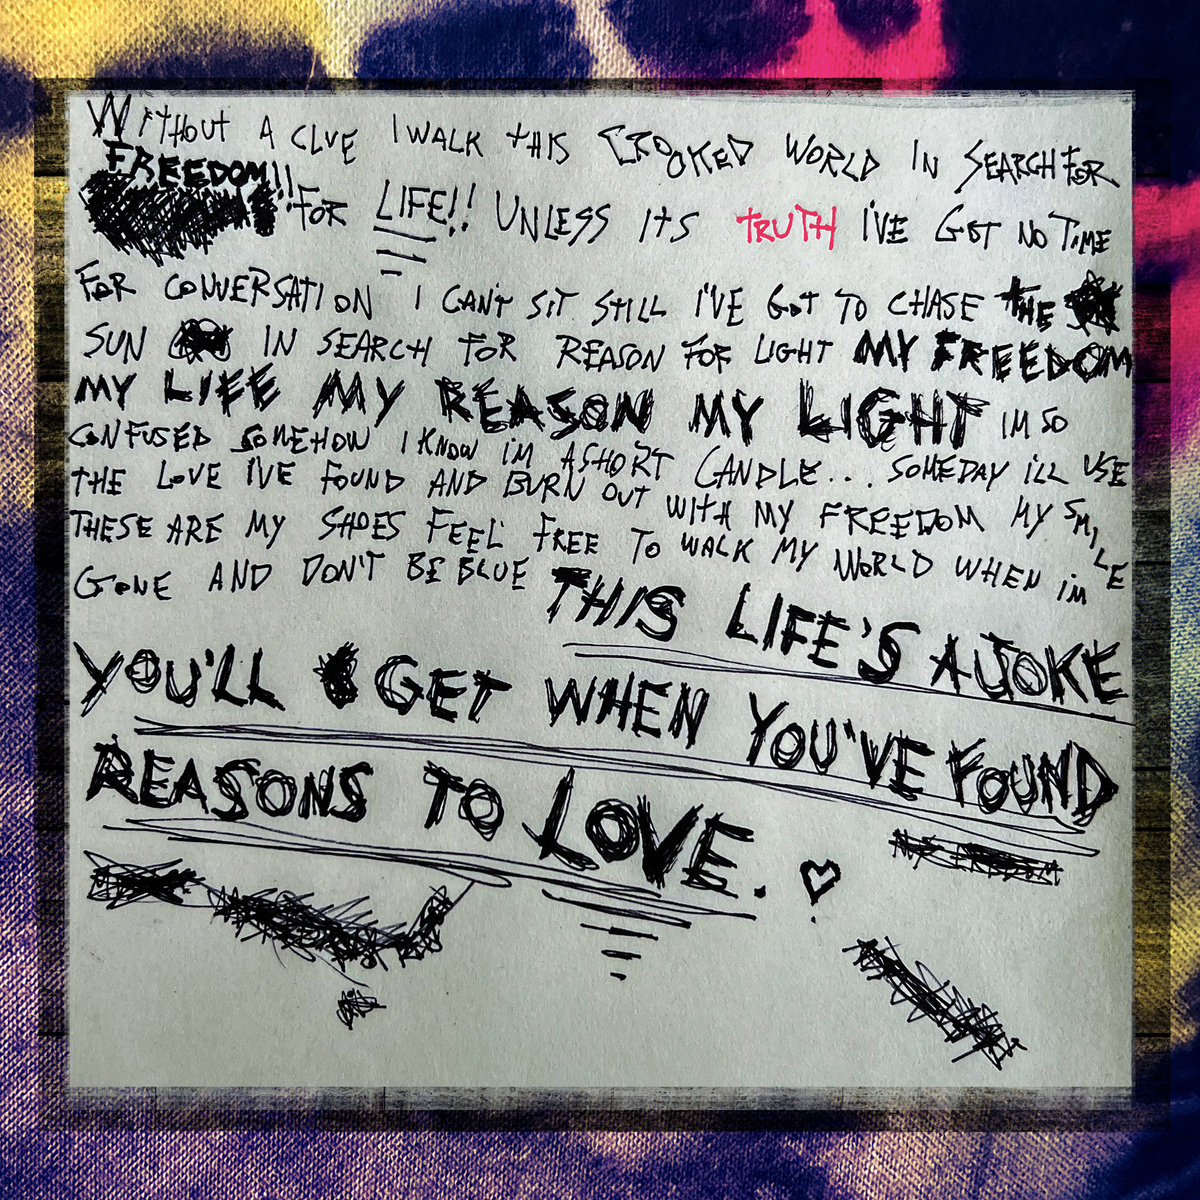 WITHOUT A CLUE I WALK THIS CROOKED WORLD IN SEARCH FOR
FREEDOM!! FOR LIFE!! UNLESS ITS TRUTH I'VE GOT NO TIME
FOR CONVERSATION I CAN'T SIT STILL I'VE GOT TO CHASE THE
SUN IN SEARCH FOR REASON FOR LIGHT MY FREEDOM
MY LIFE MY REASON MY LIGHT IM SO
CONFUSED SOMEHOW I KNOW I'M A SHORT CANDLE... SOMEDAY I'LL USE
THE LOVE I'VE FOUND AND BURN OUT WITH MY FREEDOM MY SMILE
THESE ARE MY SHOES FEEL FREE TO WALK MY WORLD WHEN I'M
GONE AND DON'T BE BLUE THIS LIFE'S A JOKE
YOU'LL GET WHEN YOU'VE FOUND
REASONS TO LOVE.